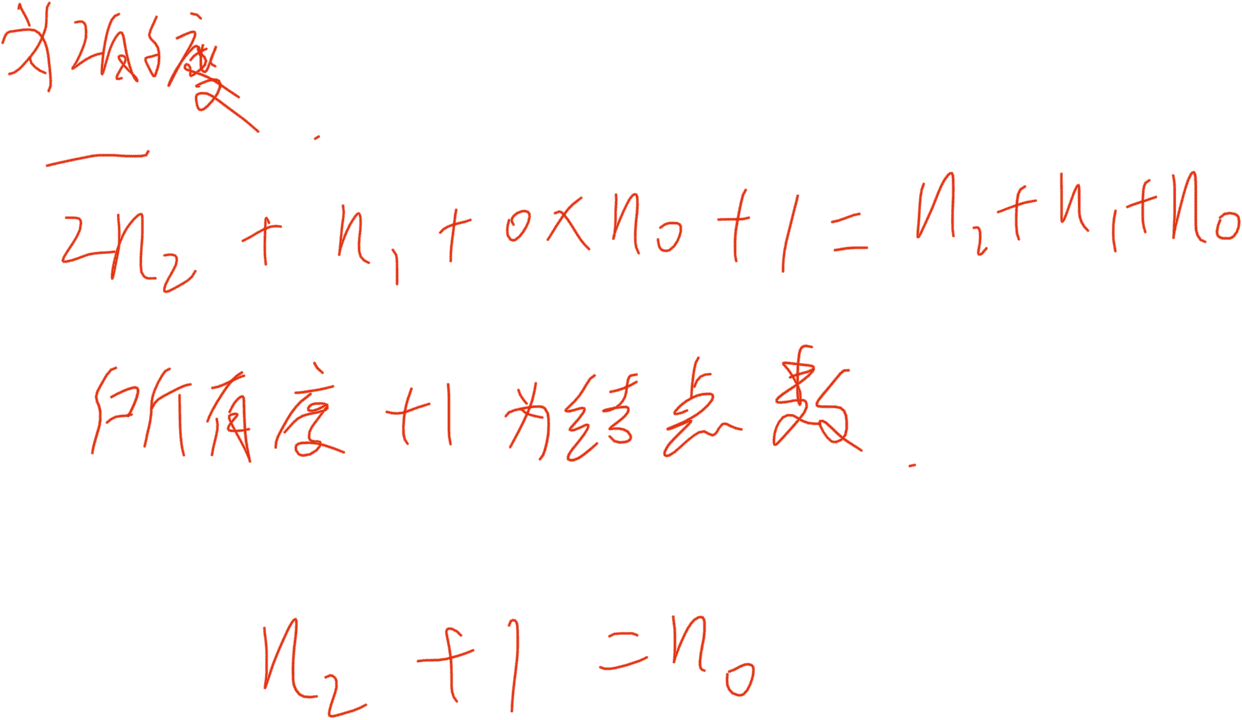 2n₂ + n₁ + 0×n₀ + 1 = n₂+n₁+n₀
所有度 +1 为结点数.
n₂ + 1 = n₀